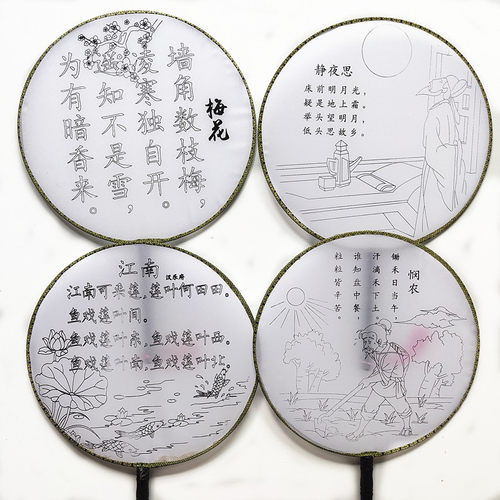 梅花
墙角数枝梅，
凌寒独自开。
遥知不是雪，
为有暗香来。
静夜思
床前明月光，
疑是地上霜。
举头望明月，
低头思故乡。
江南
汉乐府
江南可采莲，莲叶何田田。
鱼戏莲叶间。
鱼戏莲叶东，鱼戏莲叶西。
鱼戏莲叶南，鱼戏莲叶北。
悯农
锄禾日当午
汗滴禾下土
谁知盘中餐，
粒粒皆辛苦。